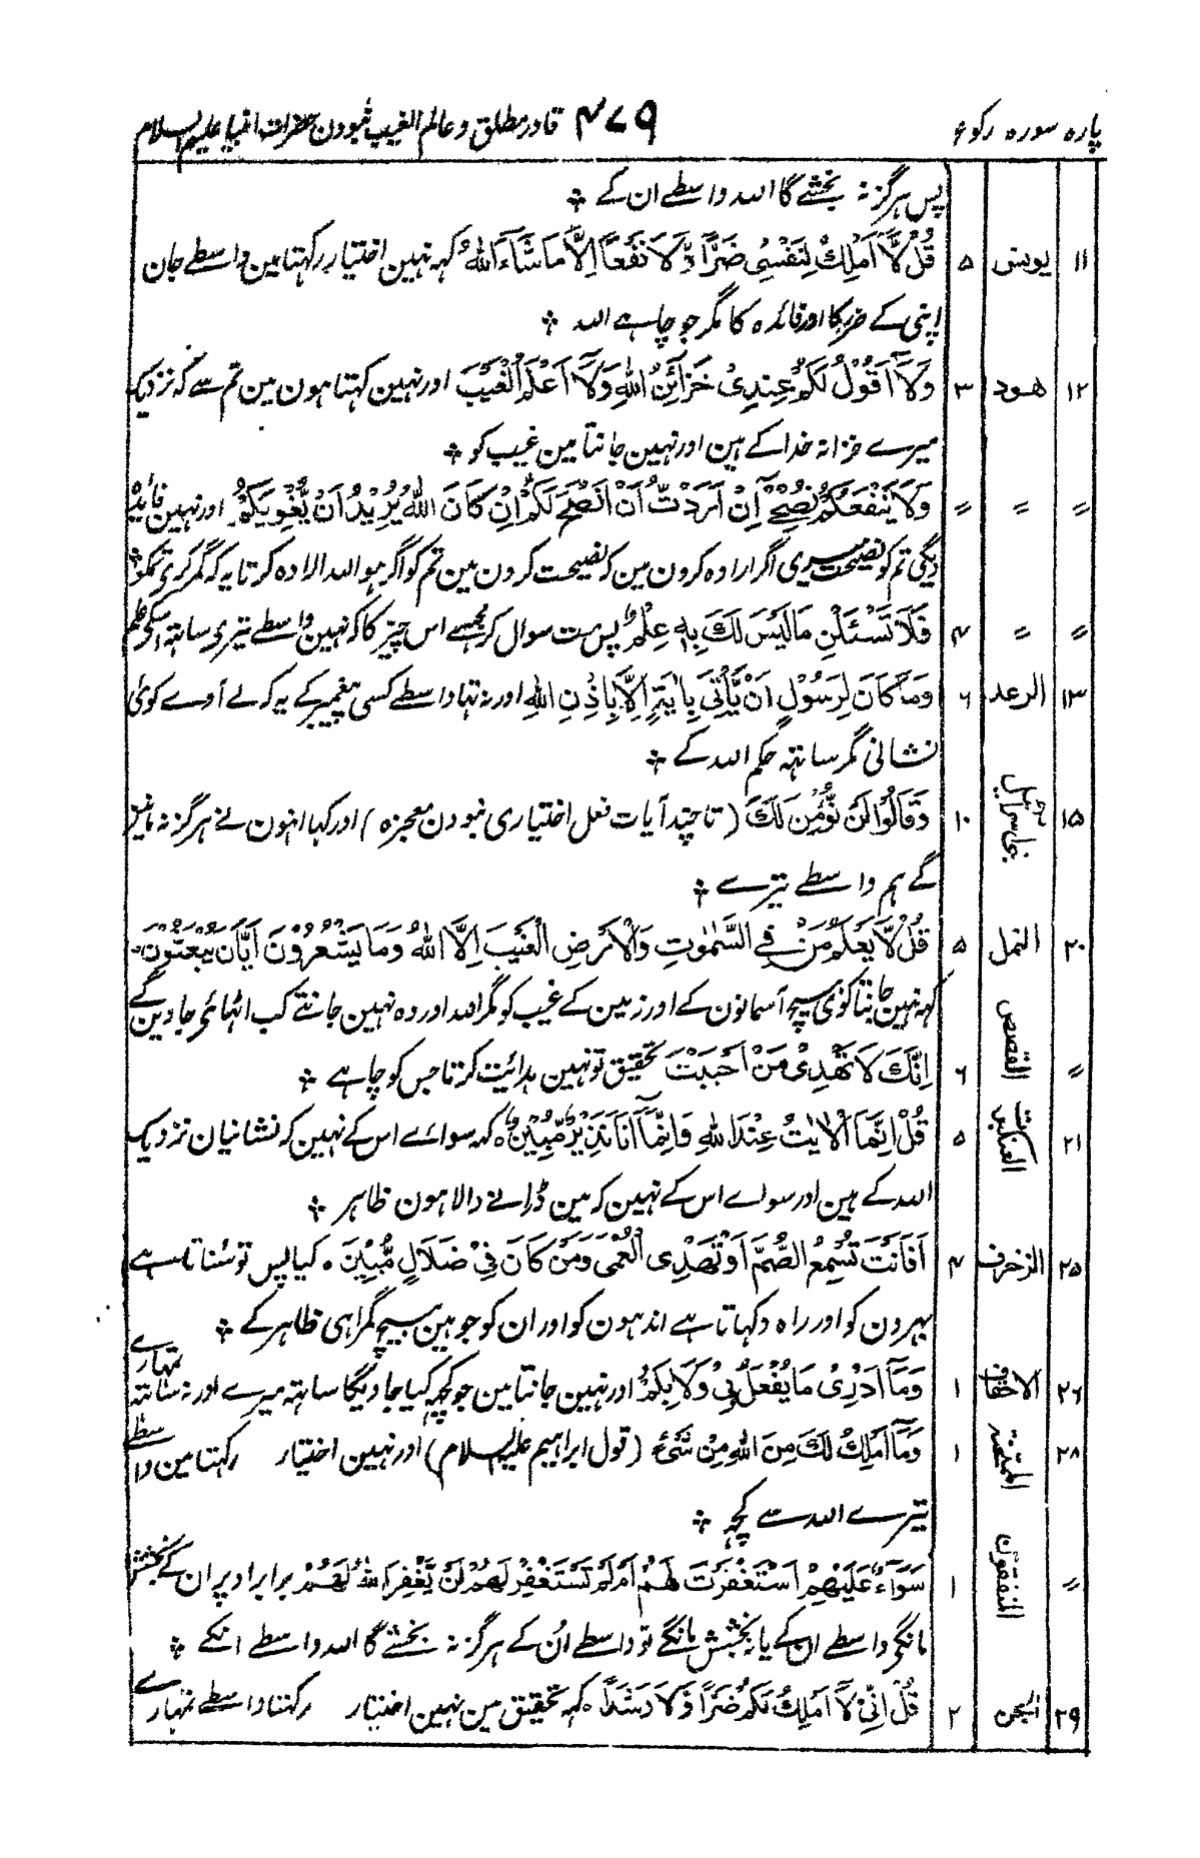 پاره سوره رکوع ۴۷۹ قادر مطلق و عالم الغیب نبودن حضرات انبیا علیہم السلام
پس ہرگز نہ بخشے گا اللہ واسطے ان کے ٭
۱۱ یونس ۵ قُلْ لَّآ اَمْلِكُ لِنَفْسِیْ ضَرًّا وَّلَا نَفْعًا اِلَّا مَا شَآءَ اللّٰهُ کہہ نہین اختیار رکہتا مین واسطے جان
اپنی کے ضر کا اور فائدہ کا مگر جو چاہے اللہ ٭
۱۲ ھود ۳ وَلَآ اَقُوْلُ لَكُمْ عِنْدِیْ خَزَآئِنُ اللّٰهِ وَلَآ اَعْلَمُ الْغَیْبَ اور نہین کہتا ہون مین تم سے کہ نزدیک
میرے خزانہ خدا کے ہین اور نہین جانتا مین غیب کو ٭
〃 〃 〃 وَلَا یَنْفَعُكُمْ نُصْحِیْ اِنْ اَرَدْتُّ اَنْ اَنْصَحَ لَكُمْ اِنْ كَانَ اللّٰهُ یُرِیْدُ اَنْ یُّغْوِیَكُمْ اور نہین فائدہ
دیگی تم کو نصیحت میری اگر ارادہ کرون مین کہ نصیحت کرون مین تم کو اگر ہو اللہ ارادہ کرتا یہ کہ گمراہ کرے تمکو ٭
〃 〃 ۴ فَلَا تَسْئَلْنِ مَا لَیْسَ لَكَ بِهٖ عِلْمٌ پس مت سوال کر مجھسے اس چیز کا کہ نہین واسطے تیری ساتہہ اسکی علم
۱۳ الرعد ۶ وَمَا كَانَ لِرَسُوْلٍ اَنْ یَّاْتِیَ بِاٰیَةٍ اِلَّا بِاِذْنِ اللّٰهِ اور نہ تہا واسطے کسی پیغمبر کے یہ کہ لے آوے کوئی
نشانی مگر ساتہہ حکم اللہ کے ٭
۱۵ بنی اسرائیل ۱۰ وَقَالُوْا لَنْ نُّؤْمِنَ لَكَ (تا چند آیات فعل اختیاری نبودن معجزہ) اور کہا انہون نے ہرگز نہ مانین
گے ہم واسطے تیرے ٭
۲۰ النمل ۵ قُلْ لَّا یَعْلَمُ مَنْ فِی السَّمٰوٰتِ وَالْاَرْضِ الْغَیْبَ اِلَّا اللّٰهُ وَمَا یَشْعُرُوْنَ اَیَّانَ یُبْعَثُوْنَ۔
کہہ نہین جانتا کوئی بیچ آسمانون کے اور زمین کے غیب کو مگر اللہ اور وہ نہین جانتے کب اٹہائے جاوین گے
〃 القصص ۶ اِنَّكَ لَا تَهْدِیْ مَنْ اَحْبَبْتَ تحقیق تو نہین ہدائیت کرتا جس کو چاہے ٭
۲۱ العنکبوت ۵ قُلْ اِنَّمَا الْاٰیٰتُ عِنْدَ اللّٰهِ وَاِنَّمَآ اَنَا نَذِیْرٌ مُّبِیْنٌ کہہ سوائے اس کے نہین کہ نشانیان نزدیک
اللہ کے ہین اور سوا اے اس کے نہین کہ مین ڈرانے والا ہون ظاہر ٭
۲۵ الزخرف ۴ اَفَاَنْتَ تُسْمِعُ الصُّمَّ اَوْ تَهْدِی الْعُمْیَ وَمَنْ كَانَ فِیْ ضَلَالٍ مُّبِیْنٍ ۔ کیا پس تو سُناتا ہے
بہرون کو اور راہ دکہاتا ہے اندہون کو اور ان کو جو ہین بیچ گمراہی ظاہر کے ٭
۲۶ الاحقاف ۱ وَمَآ اَدْرِیْ مَا یُفْعَلُ بِیْ وَلَا بِكُمْ اور نہین جانتا مین جو کچہہ کیا جاویگا ساتہہ میرے اور نہ ساتہہ تمہارے
۲۸ الممتحنہ ۱ وَمَآ اَمْلِكُ لَكَ مِنَ اللّٰهِ مِنْ شَیْءٍ (قول ابراہیم علیہ السلام) اور نہین اختیار رکہتا مین واسطے
تیرے اللہ سے کچہہ ٭
〃 المنفقون ۱ سَوَآءٌ عَلَیْهِمْ اَسْتَغْفَرْتَ لَهُمْ اَمْ لَمْ تَسْتَغْفِرْ لَهُمْ لَنْ یَّغْفِرَ اللّٰهُ لَهُمْ برابر اوپر ان کے بخشش
مانگی واسطے ان کے یا نہ بخشش مانگے تو واسطے اُن کے ہرگز نہ بخشے گا اللہ واسطے انکے ٭
۲۹ الجن ۲ قُلْ اِنِّیْ لَآ اَمْلِكُ لَكُمْ ضَرًّا وَّلَا رَشَدًا کہہ تحقیق مین نہین اختیار رکہتا واسطے تمہارے